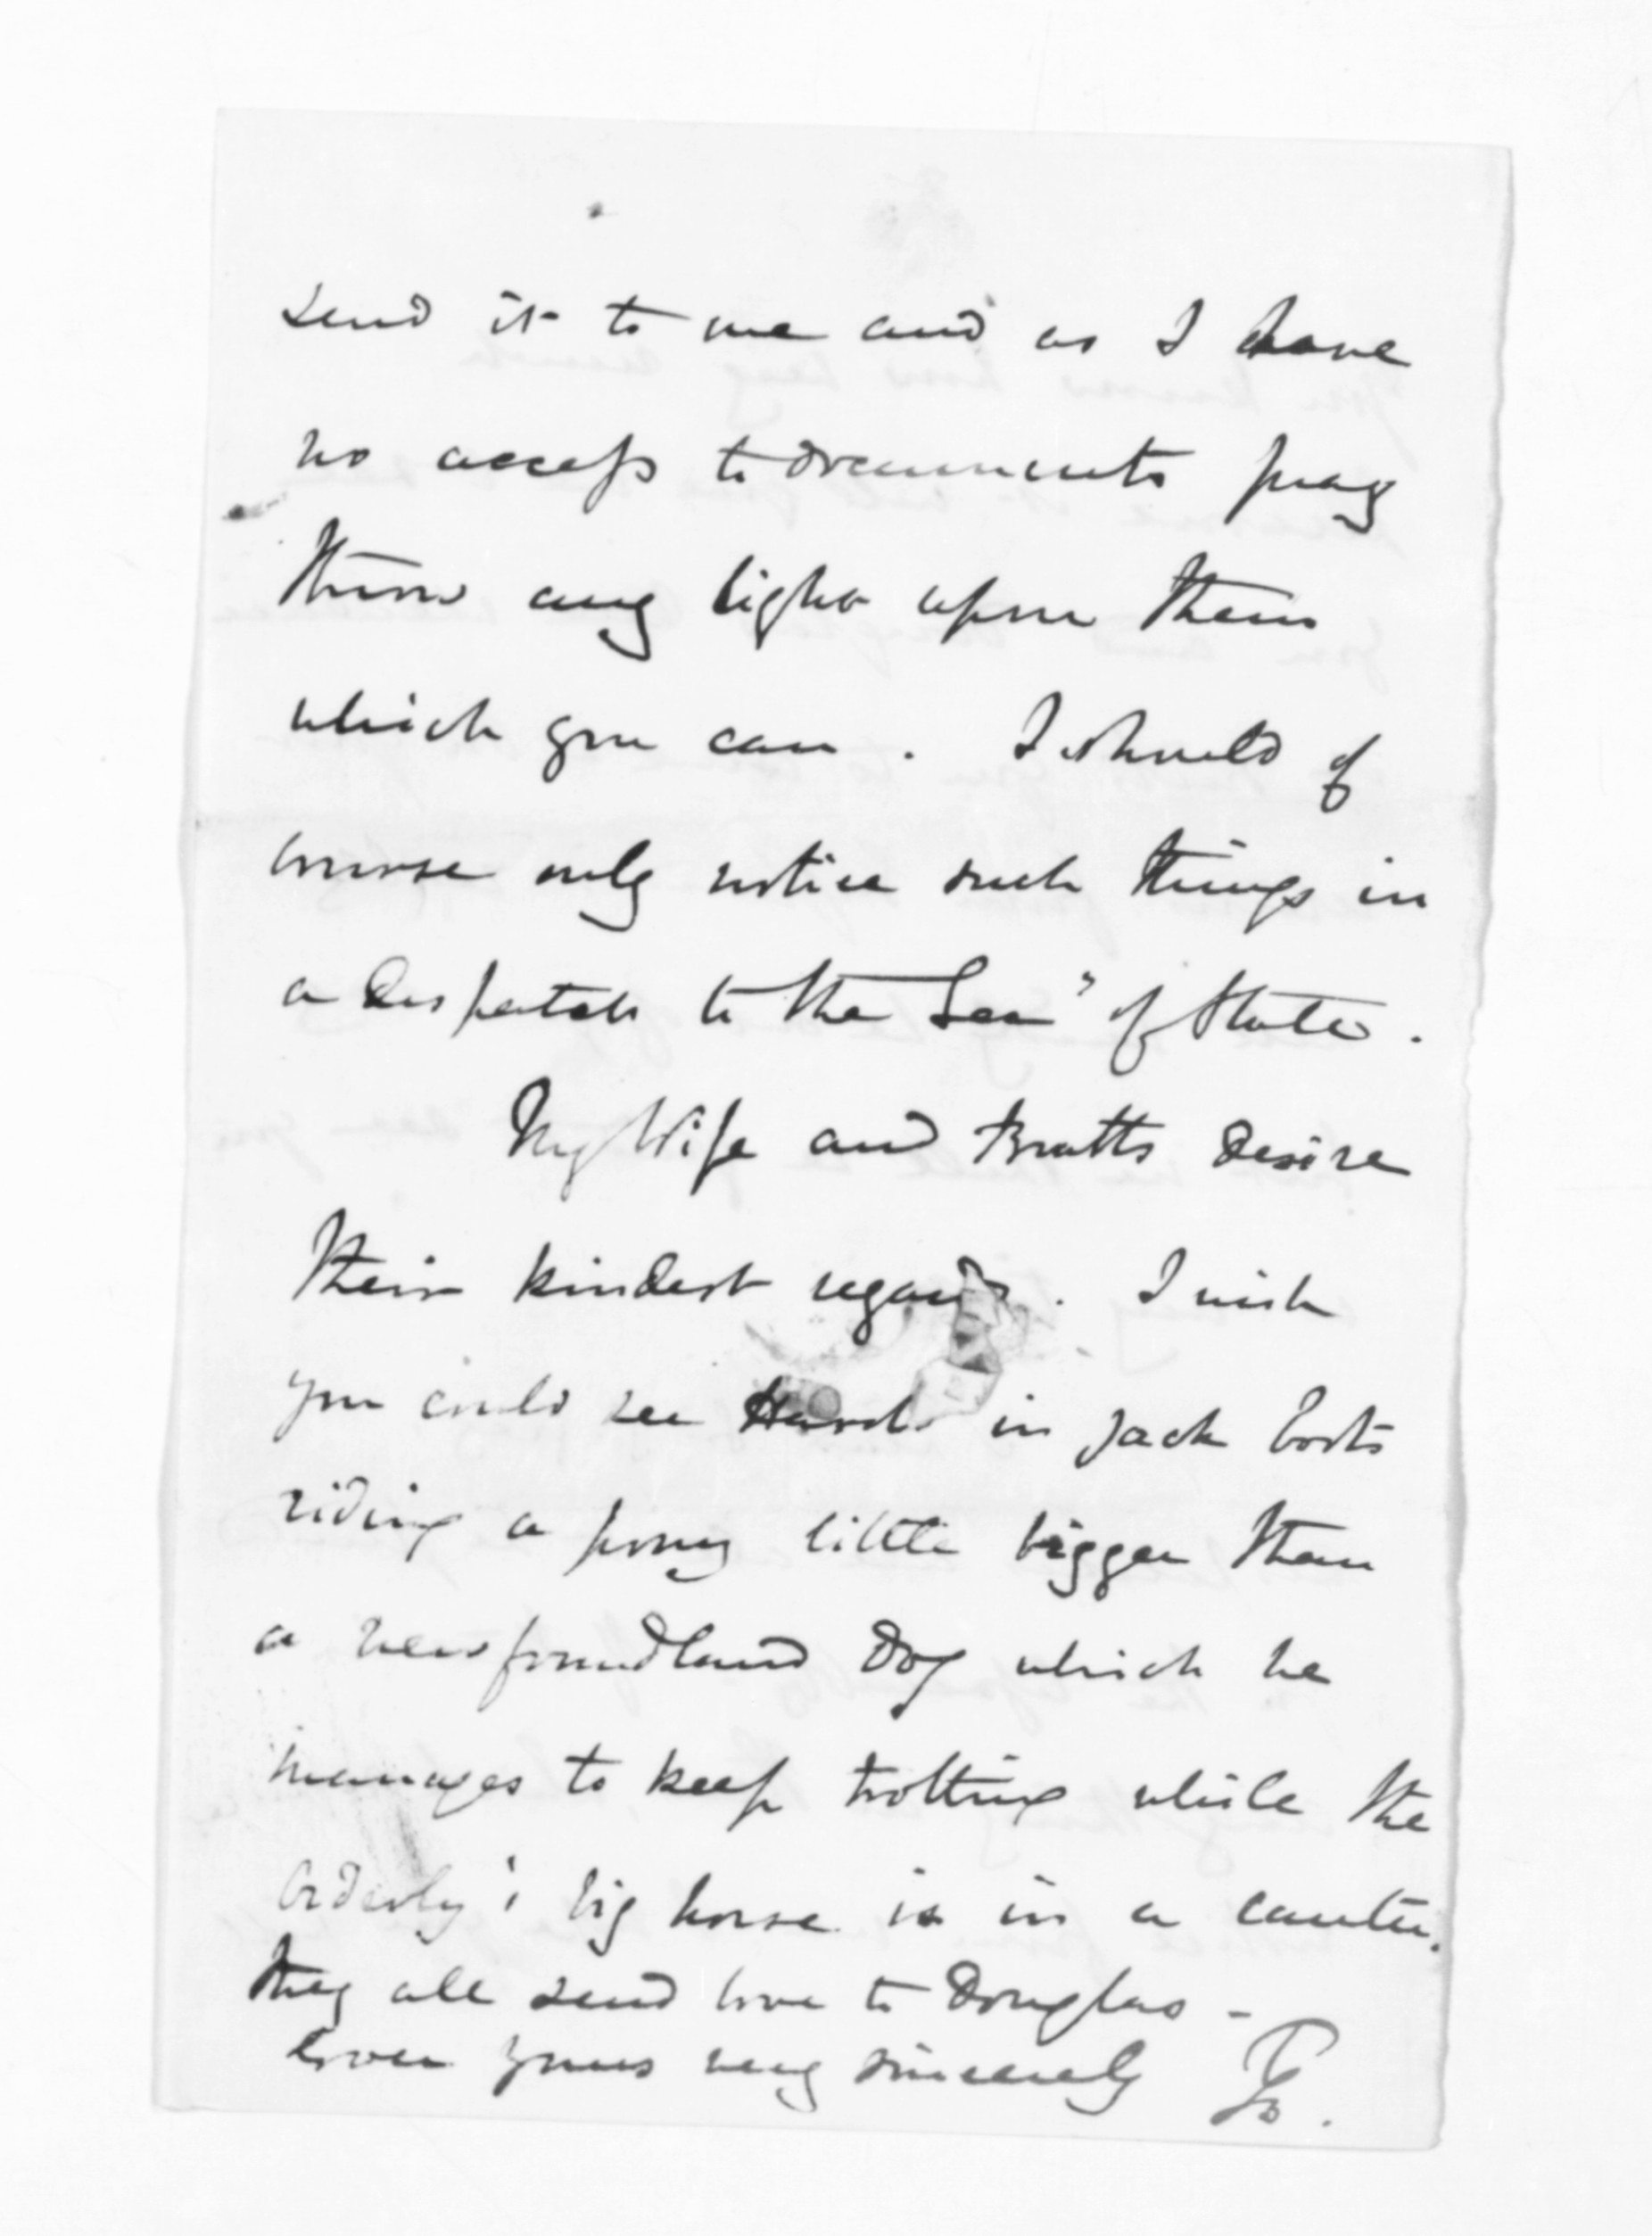 send it to me and as I have
no access to documents pray
throw any light upon them
which you can. I should of
course only notice such things in
a despatch to the Secy of State.
My Wife and Bratts desire
their kindest regards. I wish
you could see Harold in jack boots
riding a pony little bigger than
a newfoundland dog which he
manages to keep trotting while the
Orderly's big horse is in a canter.
they all send love to Douglas -
Ever yours very sincerely